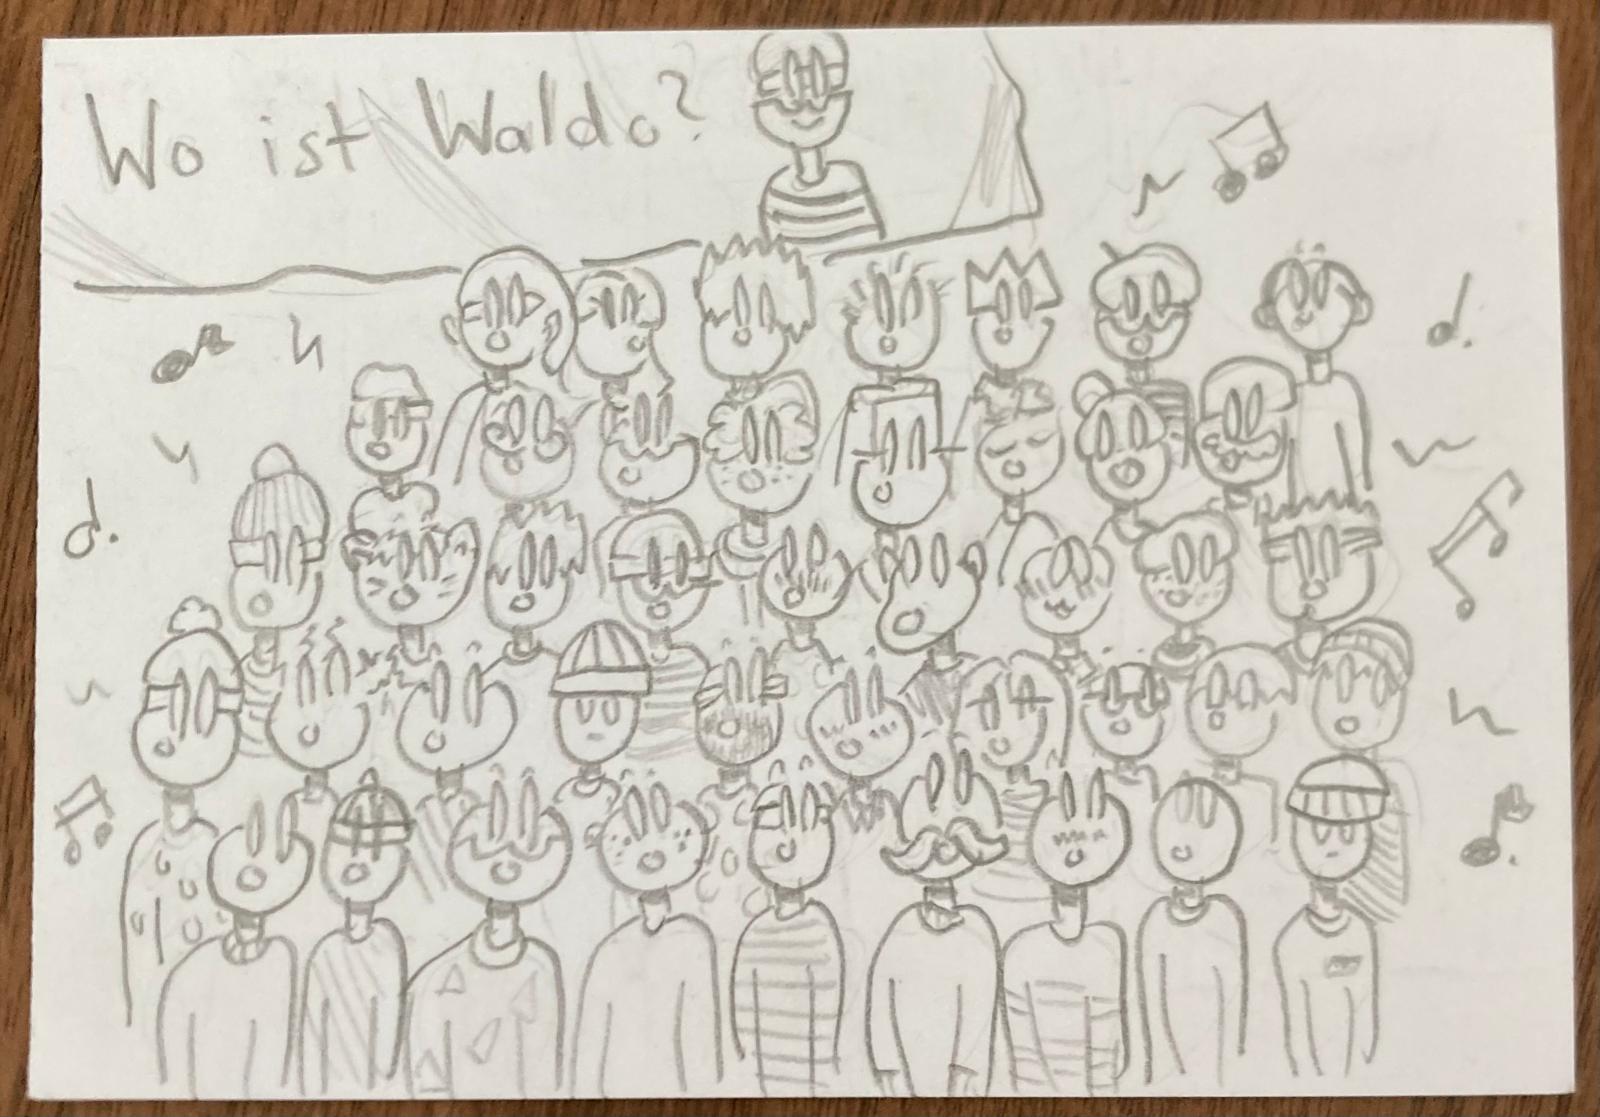 Wo ist Waldo?